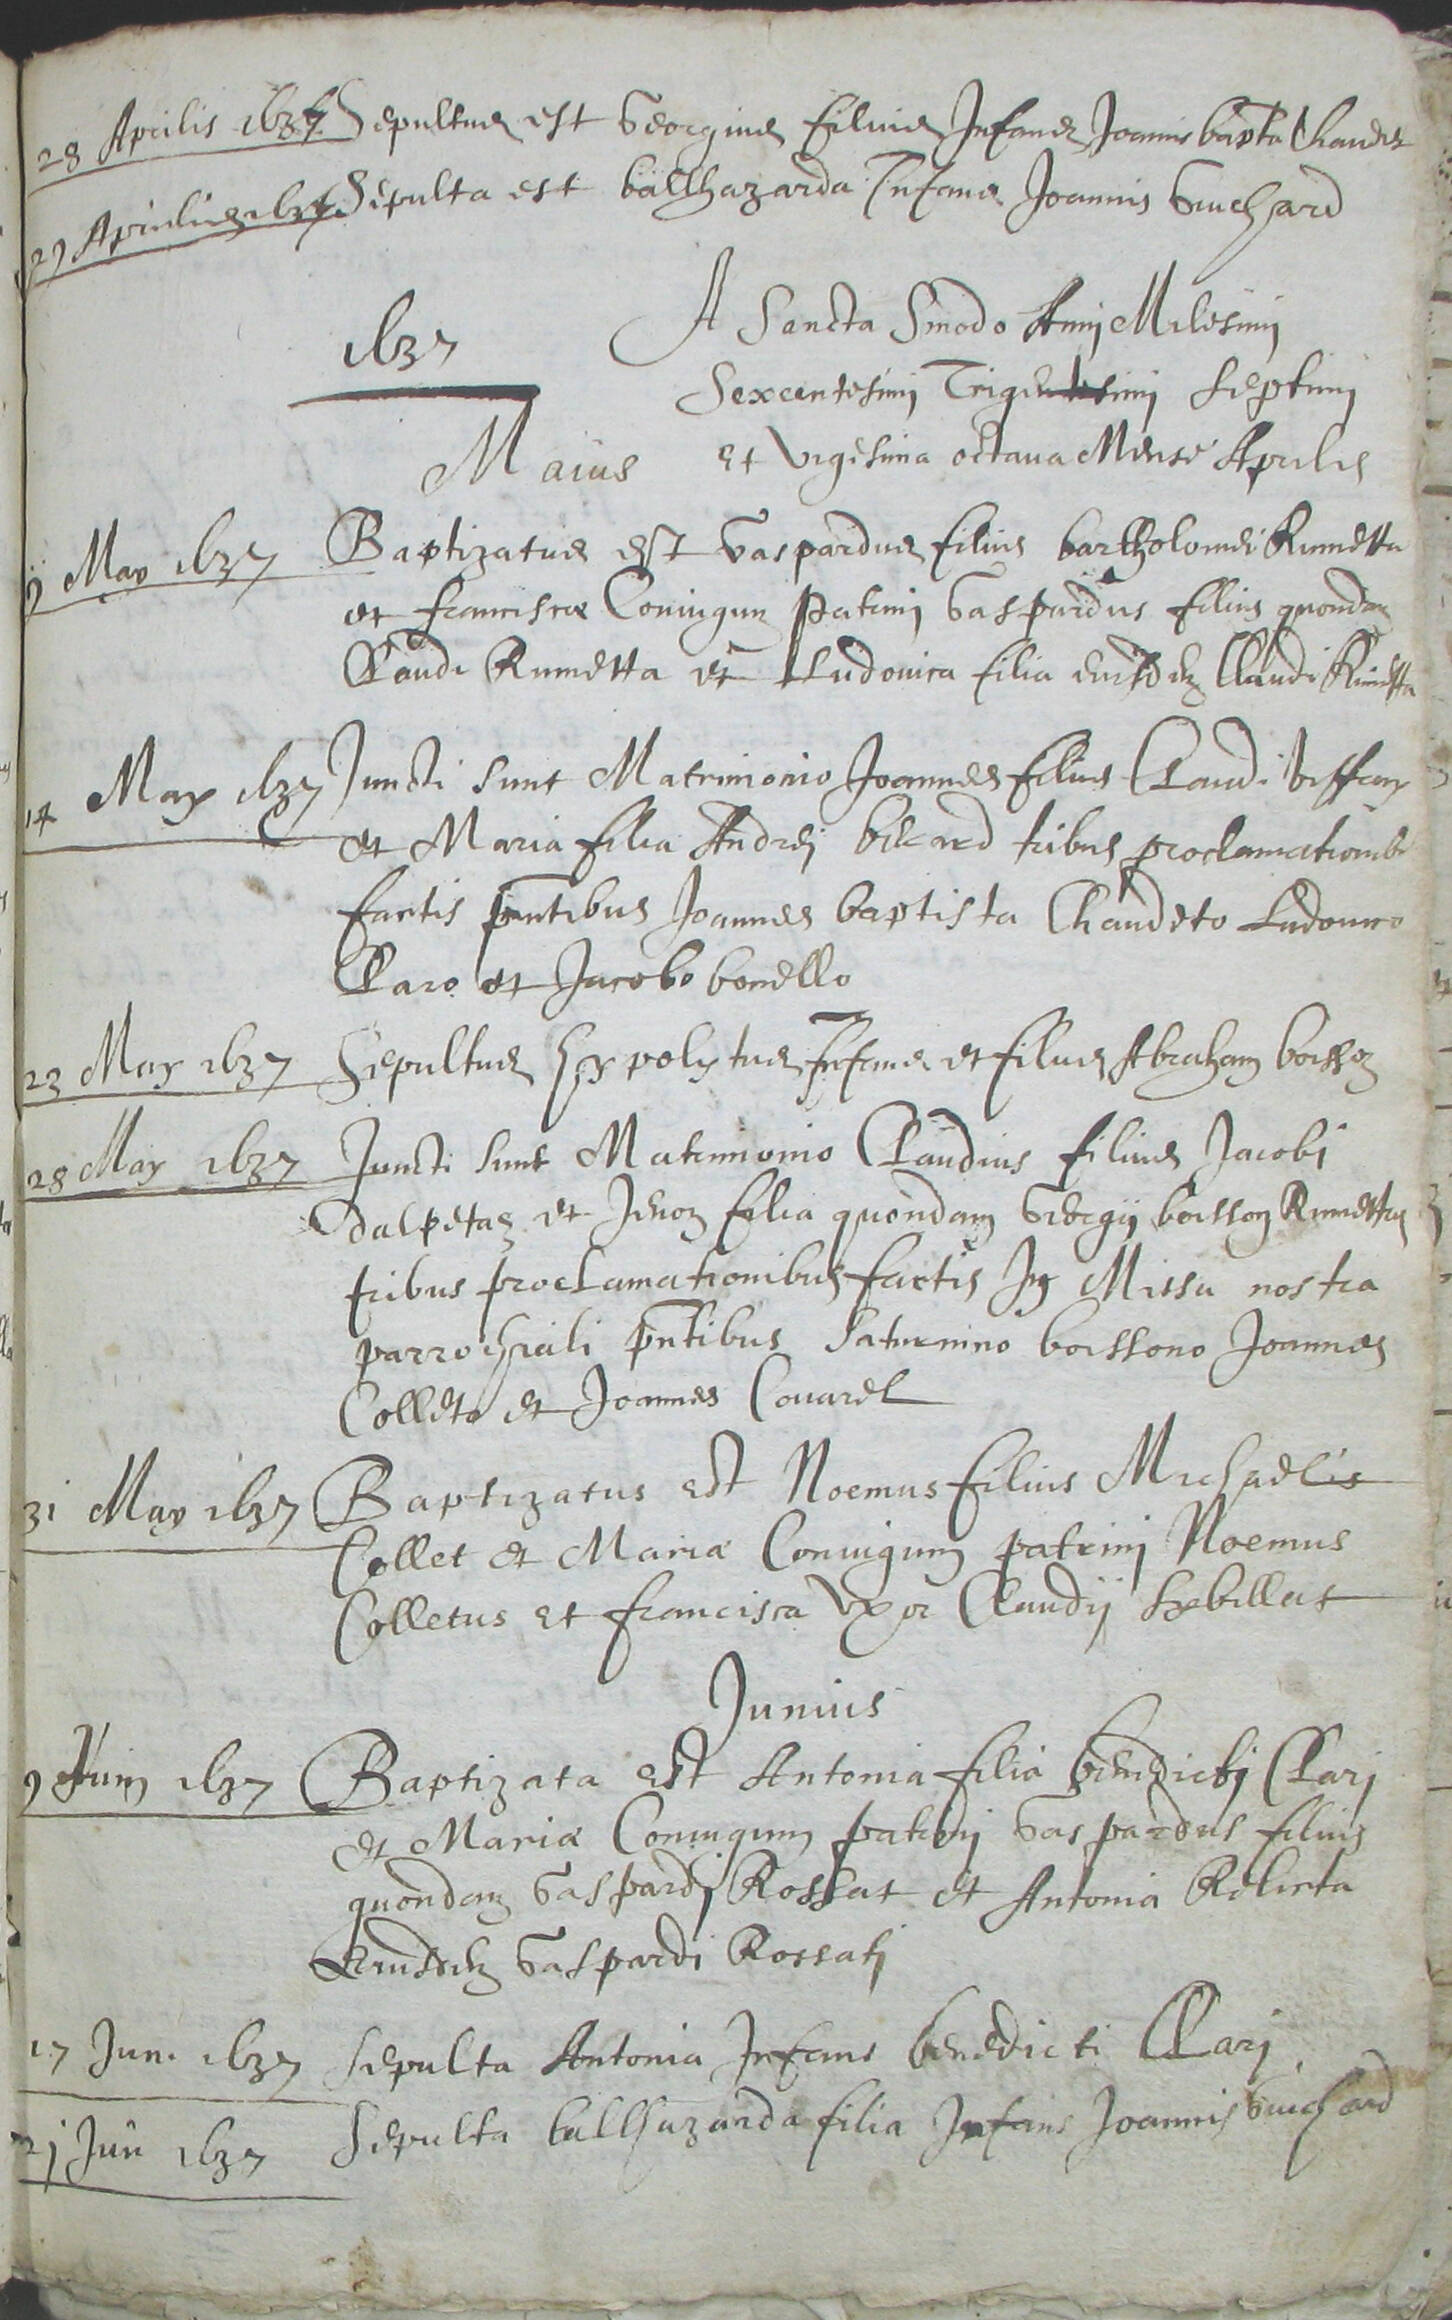 28 Aprilis 1637 Sepultus est Georgius filius Infans Joannis bapta Chaudet
29 Aprilis 1637 Sepulta est balthazarda Infans Joannis Guichard
1637
A Sancta Sinodo Annj Milesimj
Sexcentesimj Trigentesimj Septimj
et vigesima octaua Mense Aprilis
Maius
9 May 1637 Baptizatus est Gaspardus filius bartholomei Rumetta
et franciscæ Coniugum Patrinj Gaspardus filius quondam
Claudi Rumetta et Ludouica filia eiusdem Claudi Rumetta
14 May 1637 Juncti sunt Matrimonio Joannes filius Claudi
et Maria filia Andrej berard tribus proclamationib
factis pntibus Joannes baptista Chaudeto Ludouico
Claro et Jacobo bonello
23 May 1637 Sepultus Hypolytus Infans et filius Abraham boisson
28 May 1637 Juncti sunt Matrimonio Claudius filius Jacobi
dalpetaz et filia quondam Georgij boisson Rumettaz
tribus proclamationibus factis In Missa nostra
parrochiali pntibus Saturnino boissono Joannes
Colleto et Joannes Couarel
31 May 1637 Baptizatus est Noemus filius Michaelis
Collet et Mariæ Coniugum patrinj Noemus
Colletus et francisca vxor Claudij Sybillat
Junius
9 Junij 1637 Baptizata est Antonia filia benedictj Clarj
et Mariæ Coniugum patrinj Gaspardus filius
quondam Gaspardj Rossat et Antonia Relicta
Eiusdem Gaspardi Rossatj
17 Jun. 1637 Sepulta Antonia Infans benedicti Clarj
21 Jun 1637 Sepulta balthazarda filia Infans Joannis Guichard